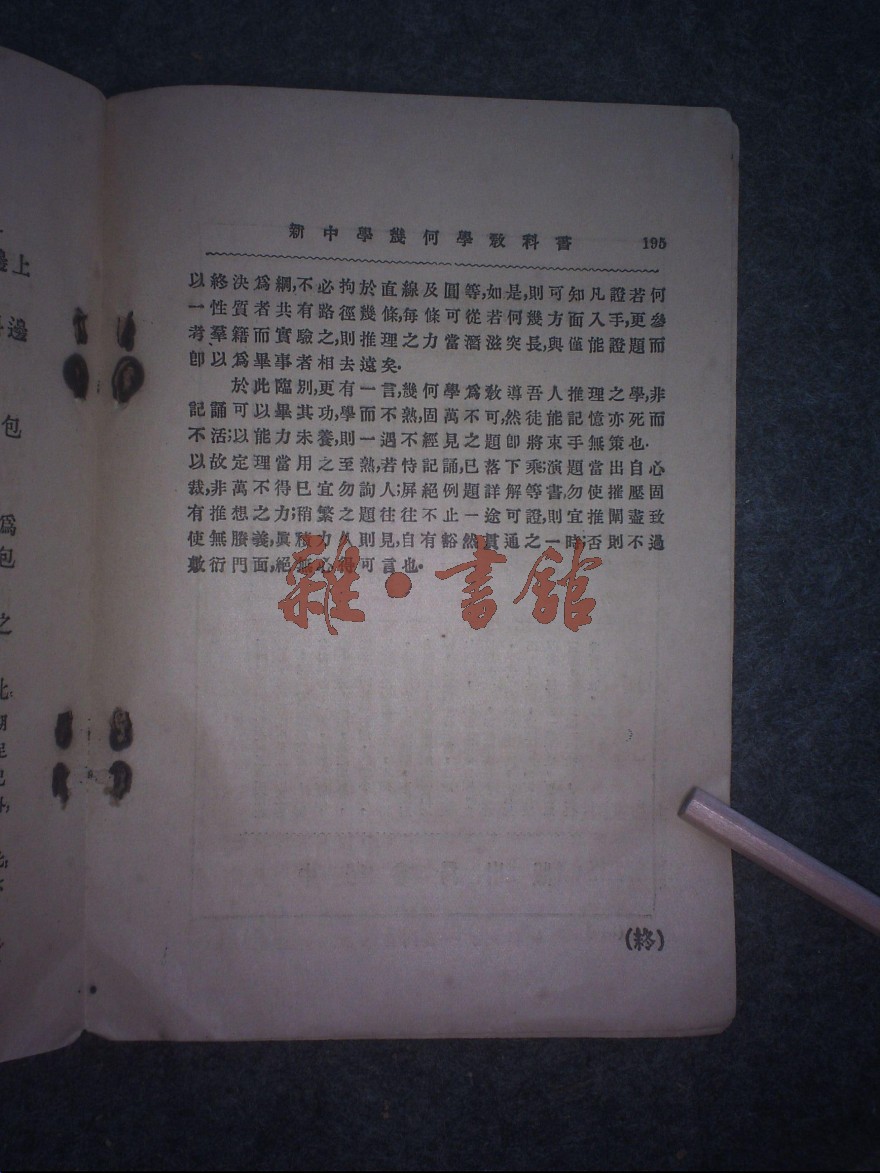 新中學幾何學教科書 195
以終決爲綱,不必拘於直線及圓等,如是,則可知凡證若何
一性質者共有路徑幾條,每條可從若何幾方面入手,更參
考羣籍而實驗之,則推理之力當潛滋突長,與僅能證題而
卽以爲畢事者相去遠矣.
於此臨別,更有一言,幾何學爲敎導吾人推理之學,非
記誦可以畢其功,學而不熟,固萬不可,然徒能記憶亦死而
不活;以能力未養,則一遇不經見之題卽將束手無策也.
以故定理當用之至熟,若恃記誦,已落下乘;演題當出自心
裁,非萬不得已宜勿詢人;屏絕例題詳解等書,勿使摧壓固
有推想之力;稍繁之題往往不止一途可證,則宜推闡盡致
使無賸義,眞積力久則見,自有豁然貫通之一時;否則不過
敷衍門面,絕無心得可言也.
雜·書館
(終)
邊上
邊
包
爲
包
之